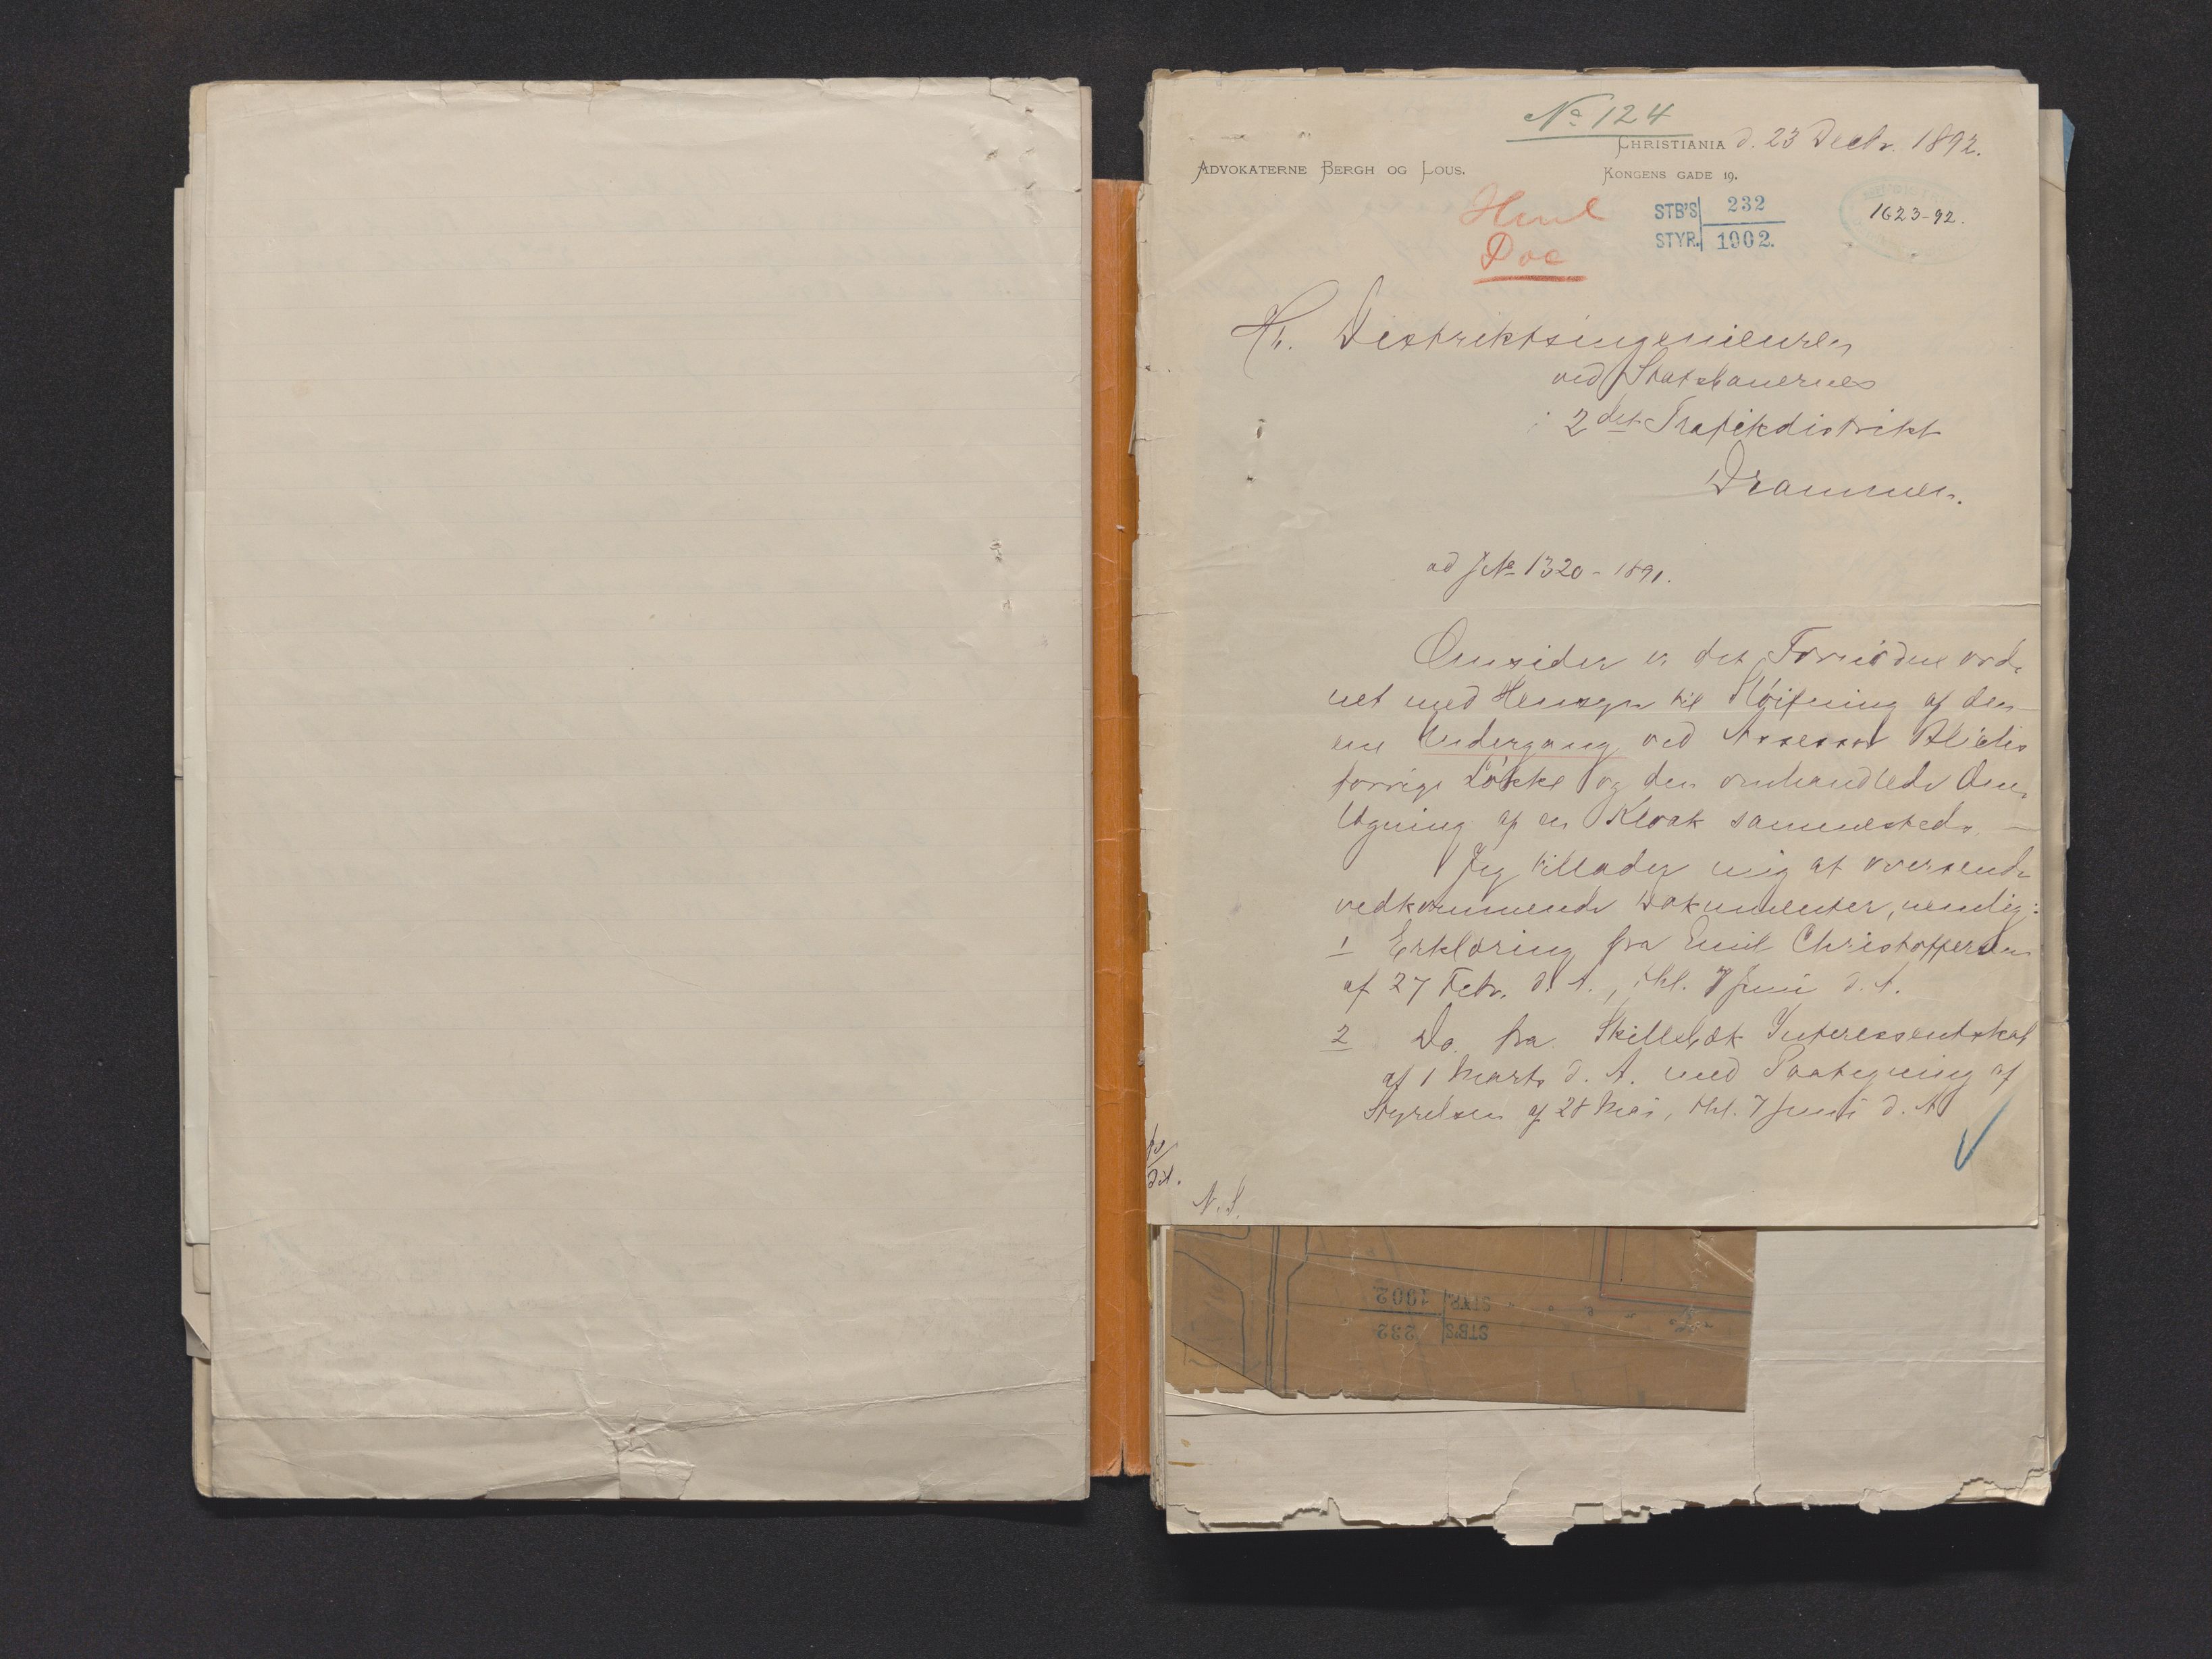 Nº 124
CHRISTIANIA d. 23 Decbr. 1892.
ADVOKATERNE BERGH OG LOUS.
KONGENS GADE 19.
STB'S 232
STYR. 1902.
1623-92.
Doc
Hr. Distriktsingeniøren
ved Statsbanernes
2det Trafikdistrikt
Drammen.
ad JNº 1320 - 1891.
Omsider er det Fornødne ord-
net med Hensyn til Sløifning af den
ene Undergang ved Assessor
forrige Løkke og den omhandlede Om-
lægning af en Kloak sammesteds. —
Jeg tillader mig at oversende
vedkommende Dokumenter, nemlig:
1 Erklæring fra Emil Christophersen
af 27 Febr. d. A., thl. 7 Juni d. A.
2 Do. fra Skillebæk Interessentskab
af 1 Marts d. A. med Paategning af
Styrelsen af 28 Mai, thl. 7 Juni d. A.
N. S.
STB'S 232
STYR. 1902